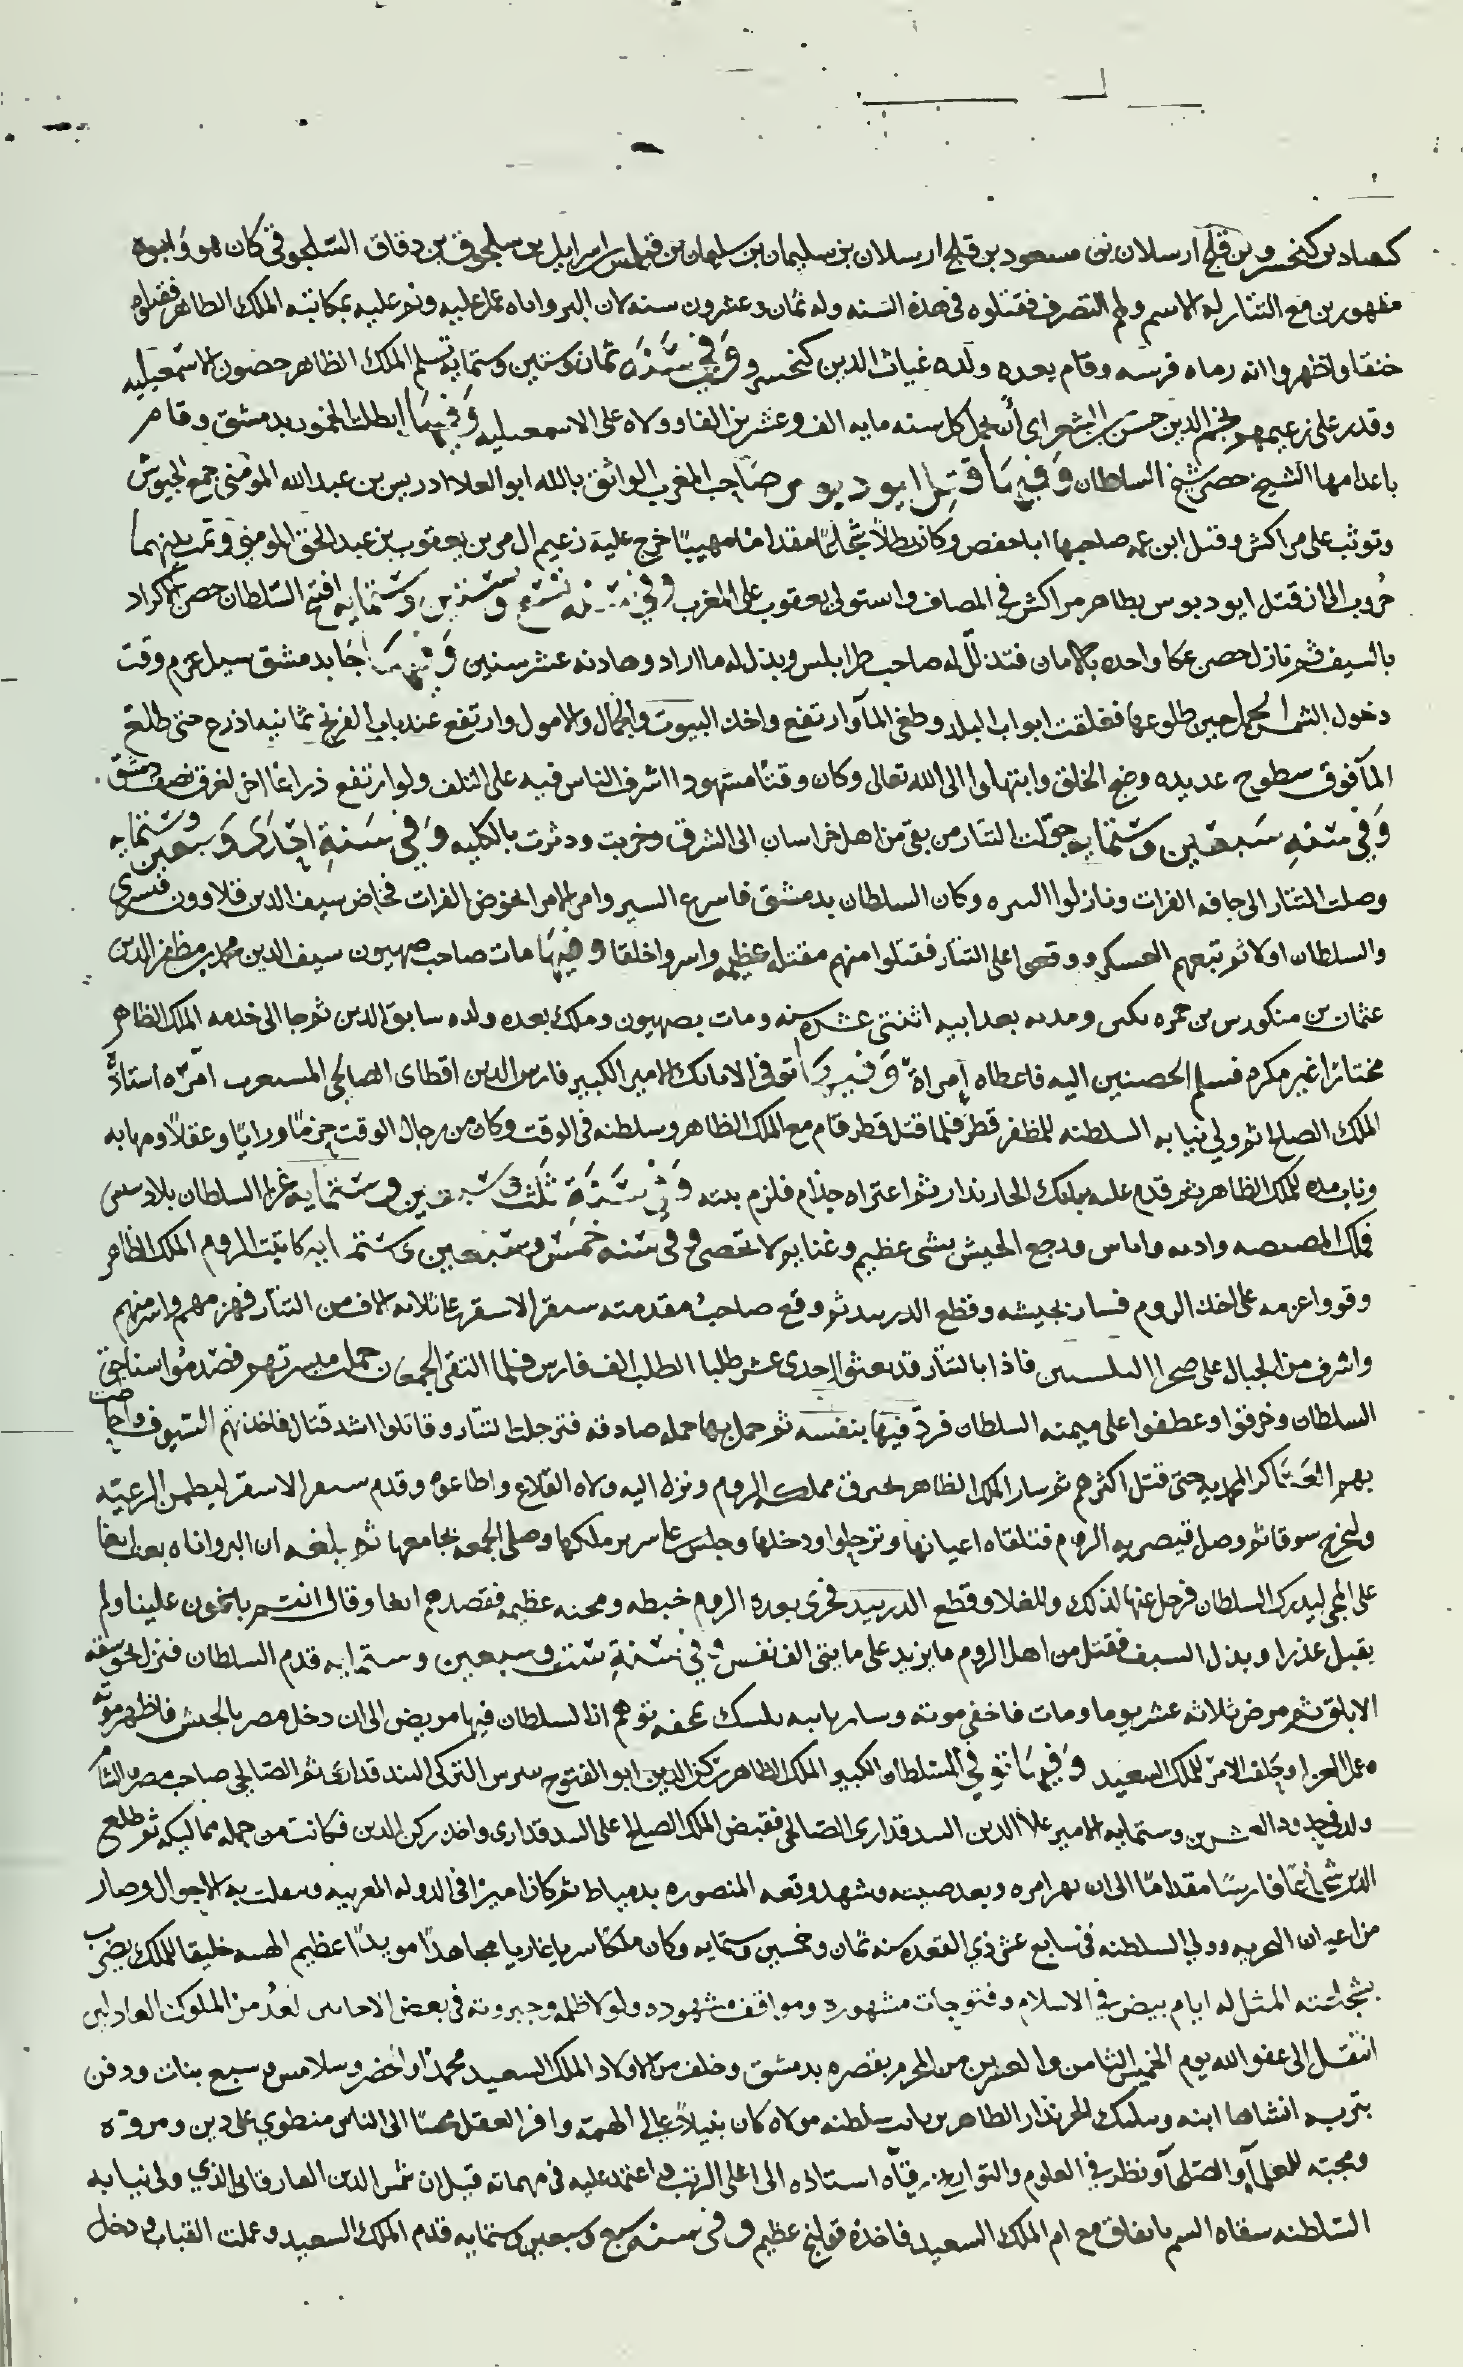 كيقباد بن كيخسرو بن قلج ارسلان بن مسعود بن قلج ارسلان بن سليمان بن سليمان بن قتلمش اسرايل بن سلجوق بن دقاق السلجوقي كان هو وابوه
مقهورين مع التتار له الاسم ولهم التصرف فقتلوه في هذه السنه وله ثمان وعشرون سنه لان البرواناه عمل عليه ونم عليه بمكاتبه الملك الظاهر فقتلوه
خنقا واظهروا انه رماه فرسه وقام بعده ولده غياث الدين كيخسرو وفي سنة ثمان وستين وستمايه تسلم الملك الظاهر حصون الاسمعيليه
وقدر على زعيمهم نجم الدين حسن بن الشعراني أن يحمل كل سنه مايه الف وعشرين الفا وولاه على الاسمعيليه وفيها ابطلت الخمور بدمشق وقام
باعدامها الشيخ خضر شيخ السلطان وفيها قتل ابو دبوس صاحب المغرب الواثق بالله ابو العلا ادريس بن عبدالله المومني جمع الجيوش
وتوثب على مراكش وقتل ابن عمه صاحبها ابا حفص وكان بطلا شجاعا مقداما مهيبا خرج عليه زعيم ال مرين يعقوب بن عبد الحق المريني وتمت بينهما
حروب الى ان قتل ابو دبوس بظاهر مراكش في المصاف واستولى يعقوب على المغرب وفي سنه تسع وستين وستمايه افتتح السلطان حصن الاكراد
بالسيف ثم نازل حصن عكا واخذه بالامان فتذلل له صاحب طرابلس وبذل له ما اراد وهادنه عشر سنين وفيها جا بدمشق سيل عرم وقت
دخول الشمس الحمل حين طلوعها فغلقت ابواب البلد وطغى الما وارتفع واخذ البيوت والجمال والامول وارتفع عند باب الفرج ثمانيه اذرع حتى طلع
المآ فوق سطوح عديده وضج الخلق وابتهلوا الى الله تعالى وكان وقتا مشهودا اشرف الناس فيه على التلف ولو ارتفع ذراعا اخر لغرق نصف دمشق
وفي سنه سبعين وستمايه حولت التتار من بقي من اهل خراسان الى الشرق وخربت ودثرت بالكليه وفي سنة احدى وسبعين وستمايه
وصلت التتار الى حافه الفرات ونازلوا البيره وكان السلطان بدمشق فاسرع السير وامر الامرا بخوض الفرات فخاض سيف الدين قلاوون وبيسري
والسلطان اولا ثم تبعهم العسكر ووقعوا على التتار فقتلوا منهم مقتله عظيمه واسروا خلقا وفيها مات صاحب صهيون سيف الدين محمد بن مظفر الدين
عثمان بن منكورس بن خمرتكين ومدته بعد ابيه اثنتى عشره سنه ومات بصهيون وملك بعده ولده سابق الدين ثم جا الى خدمه الملك الظاهر
مختارا غير مكره فسلم الحصنين اليه فاعطاه إمراة وفيها توفى الاتابك الامير الكبير فارس الدين اقطاى الصالحي المستعرب امره استاذه
الملك الصالح ثم ولي نيابه السلطنه للمظفر قطز فلما قتل قطز قام مع الملك الظاهر وسلطنه في الوقت وكان من رجال الوقت حزما ورايا وعقلا ومهابه
وناب مده للملك الظاهر ثم قدم عليه بيلبك الخازندار ثم اعتراه جذام فلزم بيته وفي سنة ثلث وسبعين وستمايه غزا السلطان بلاد سيس
فملك المصيصه وادنه واياس ورجع الجيش بشى عظيم وغنايم لا تحصى وفي سنه خمس وسبعين وستمايه كاتبت الروم الملك الظاهر
وقووا عزمه على اخذ الروم فسار بجيشه وقطع الدربند ثم وقع صاحب مقدمته سنقر الاشقر على ثلاثه الاف من التتار فهزمهم واسر منهم
واشرف من الجبال على صحرا البلستين فاذا بالتتار قد تعبوا احدى عشر طلبا الطلب الف فارس فلما التقى الجمعان حملت ميسرتهم فصدموا سناجق
السلطان وخرقوا وعطفوا على ميمنه السلطان فردّ فيها بنفسه ثم حمل بها حمله صادقه فترجلت التتار وقاتلوا اشد قتال فاخذتهم السيوف واحاطت
بهم العساكر المحمديه حتى قتل اكثرهم ثم سار الملك الظاهر يخترق مملكه الروم ونزل اليه ولاه القلاع واطاعوه وقدم سنقر الاشقر ليطمن الرعيه
وليخرج سوقا ثم وصل قيصريه الروم فتلقاه اعيانها وترجلوا ودخلها وجلس على سرير ملكها وصلى الجمعه بجامعها ثم بلغه ان البرواناه بعث ابغا
على المجى ليدرك السلطان فرحل عنها لذلك وللغلا وقطع الدربند فجرى بعده الروم خبطه ومحنه عظيمه فقصدهم ابغا وقال انتم باغون علينا ولم
يقبل عذرا وبذل السيف فقتل من اهل الروم ما يزيد على مايتى الف نفس وفي سنة ست وسبعين وستمايه قدم السلطان فنزل بجوسقه
الابلق ثم مرض ثلاثه عشر يوما ومات فاخفي موته وسار نايبه بيلبك بمحفه توهم ان السلطان فيها مريض الى ان دخل مصر بالجيش فاظهر موته
وعمل العزا وحلف الامرا للملك السعيد وفيها توفي السلطان الكبير الملك الظاهر ركن الدين ابو الفتوح بيبرس التركى البندقدارى ثم الصالحي صاحب مصر والشام
ولد في حدود العشرين وستمايه الامير علا الدين البندقدارى الصالحي فقبض الملك الصالح على البندقدارى واخذ ركن الدين فكانت من جمله مماليكه ثم طلع
الدين شجاعا فارسا مقداما الى ان بهر امره وبعد صيته وشهد وقعه المنصوره بدمياط ثم كان اميرا في الدوله المعزيه وتنقلت به الاحوال وصار
من اعيان البحريه وولي السلطنه في سابع عشر ذي القعده سنه ثمان وخمسين وستمايه وكان ملكا سريا غازيا مجاهدا مويدا عظيم الهيبه خليقا للملك يضرب
بشجاعته المثل له ايام بيض في الاسلام وفتوحات مشهوره ومواقف مشهوده ولولا ظلمه وجبروته في بعض الاحايين لعد من الملوك العادلين
انتقل الى عفو الله يوم الخميس الثامن والعشرين من المحرم بقصره بدمشق وخلف من الاولاد الملك السعيد محمدا وخضر وسلامش وسبع بنات ودفن
بتربه انشاها ابنه وبيلبك الخزندار الظاهرى نايب سلطنه مولاه كان نبيلا عالي الهمة وافر العقل محسنا الى الناس منطوي على دين ومروة
ومحبه للعلمآ والصلحآ ونظر في العلوم والتواريخ رقاه استاذه الى اعلى الرتب واعتمد عليه في مهماته قيل ان شمس الدين الفارقانى الذي ولى نيابه
السلطنه سقاه السم باتفاق مع ام الملك السعيد فاخذه قولنج عظيم وفي سنه سبع وسبعين وستمايه قدم الملك السعيد وعملت القباب ودخل